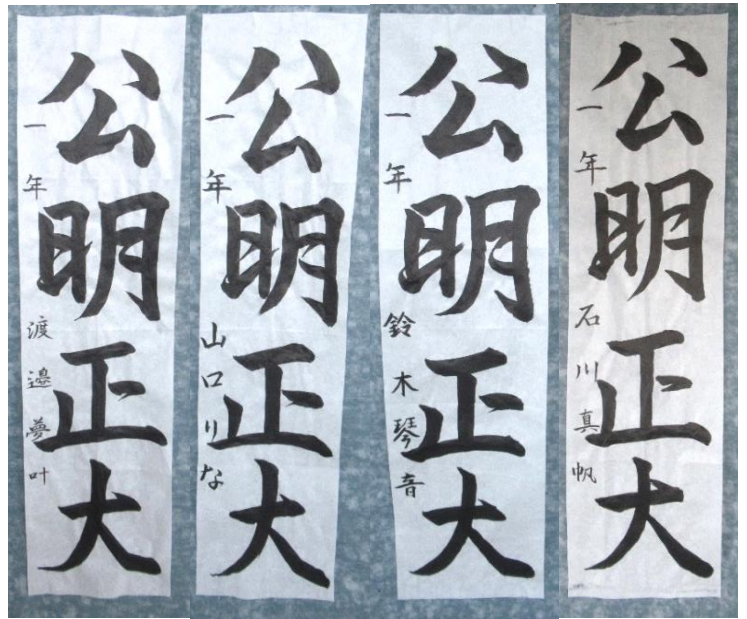 公明正大
一年 渡邉夢叶
公明正大
一年 山口りな
公明正大
一年 鈴木琴音
公明正大
一年 石川真帆